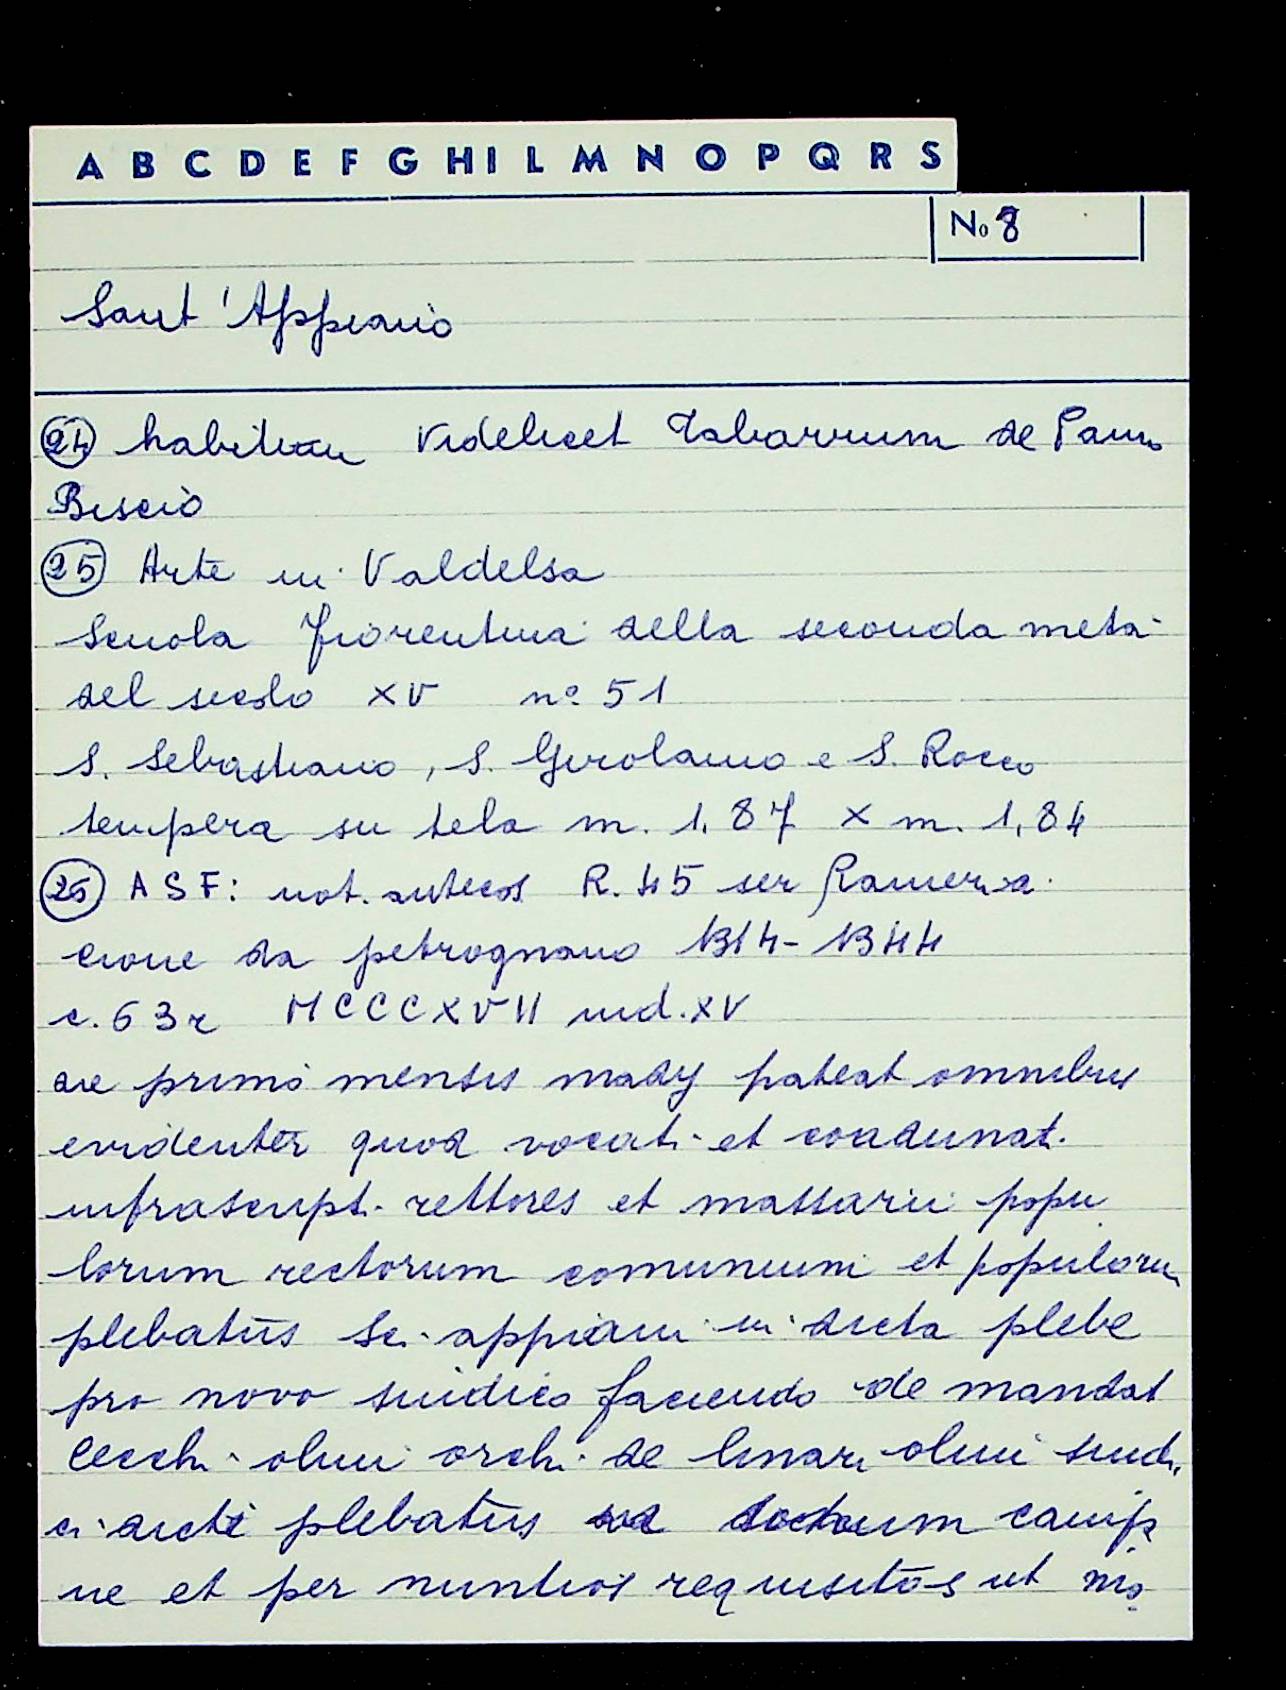 A B C D E F G H I L M N O P Q R S
No 8
Sant'Appiano
24 habitum videlicet Tabarrum de Panno
Biscio
25 Arte in Valdelsa
Scuola fiorentina della seconda metà
del secolo XV n° 51
S. Sebastiano, S. Girolamo e S. Rocco
tempera su tela m. 1,87 x m. 1,84
26 ASF: not. antecos R. 45 ser Ranieri a
cione da petrognano 1314-1344
c. 63r MCCCXVII ind. XV
die primo mensis mady pateat omnibus
evidenter quod vocati et coadunat.
infrascript. rettores et massarii popu
lorum rectorum comunium et populorum
plebatus Sci appiani in dicta plebe
pro novo sindico faciendo de mandat
Cecchi olim orchi de linari olim sindi
ci dicti plebatus ad sonum camp
ne et per nuntios requisitos ut mo